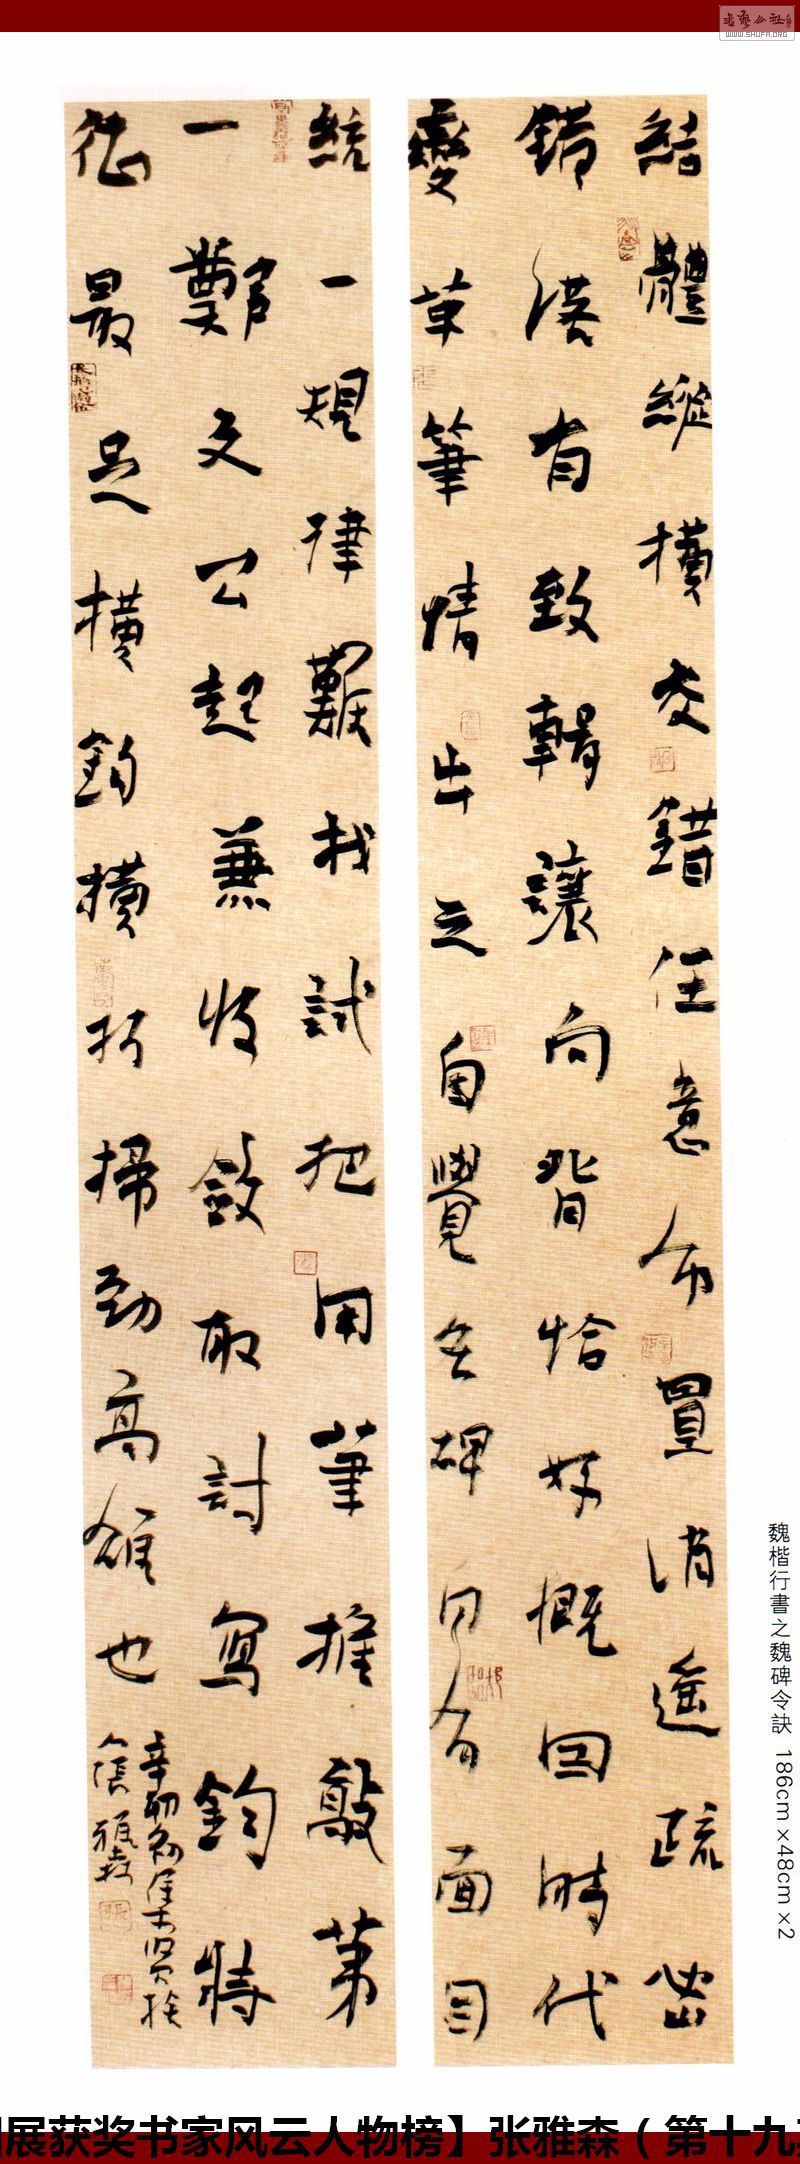 書艺公社
WWW.SHUFA.ORG
結體縱横交錯任意布置消遥疏密
錯落有致輯讓向背恰好概因時代
變革筆情出之自覺名碑自有面目
統一規律艱找試把用筆推敲第
一鄭文公起兼收斂取討寫鈎特
征最足横鈎横折掃勁高雄也
張雅森
魏楷行書之魏碑令訣 186cm×48cm×2
展获奖书家风云人物榜】张雅森（第十九